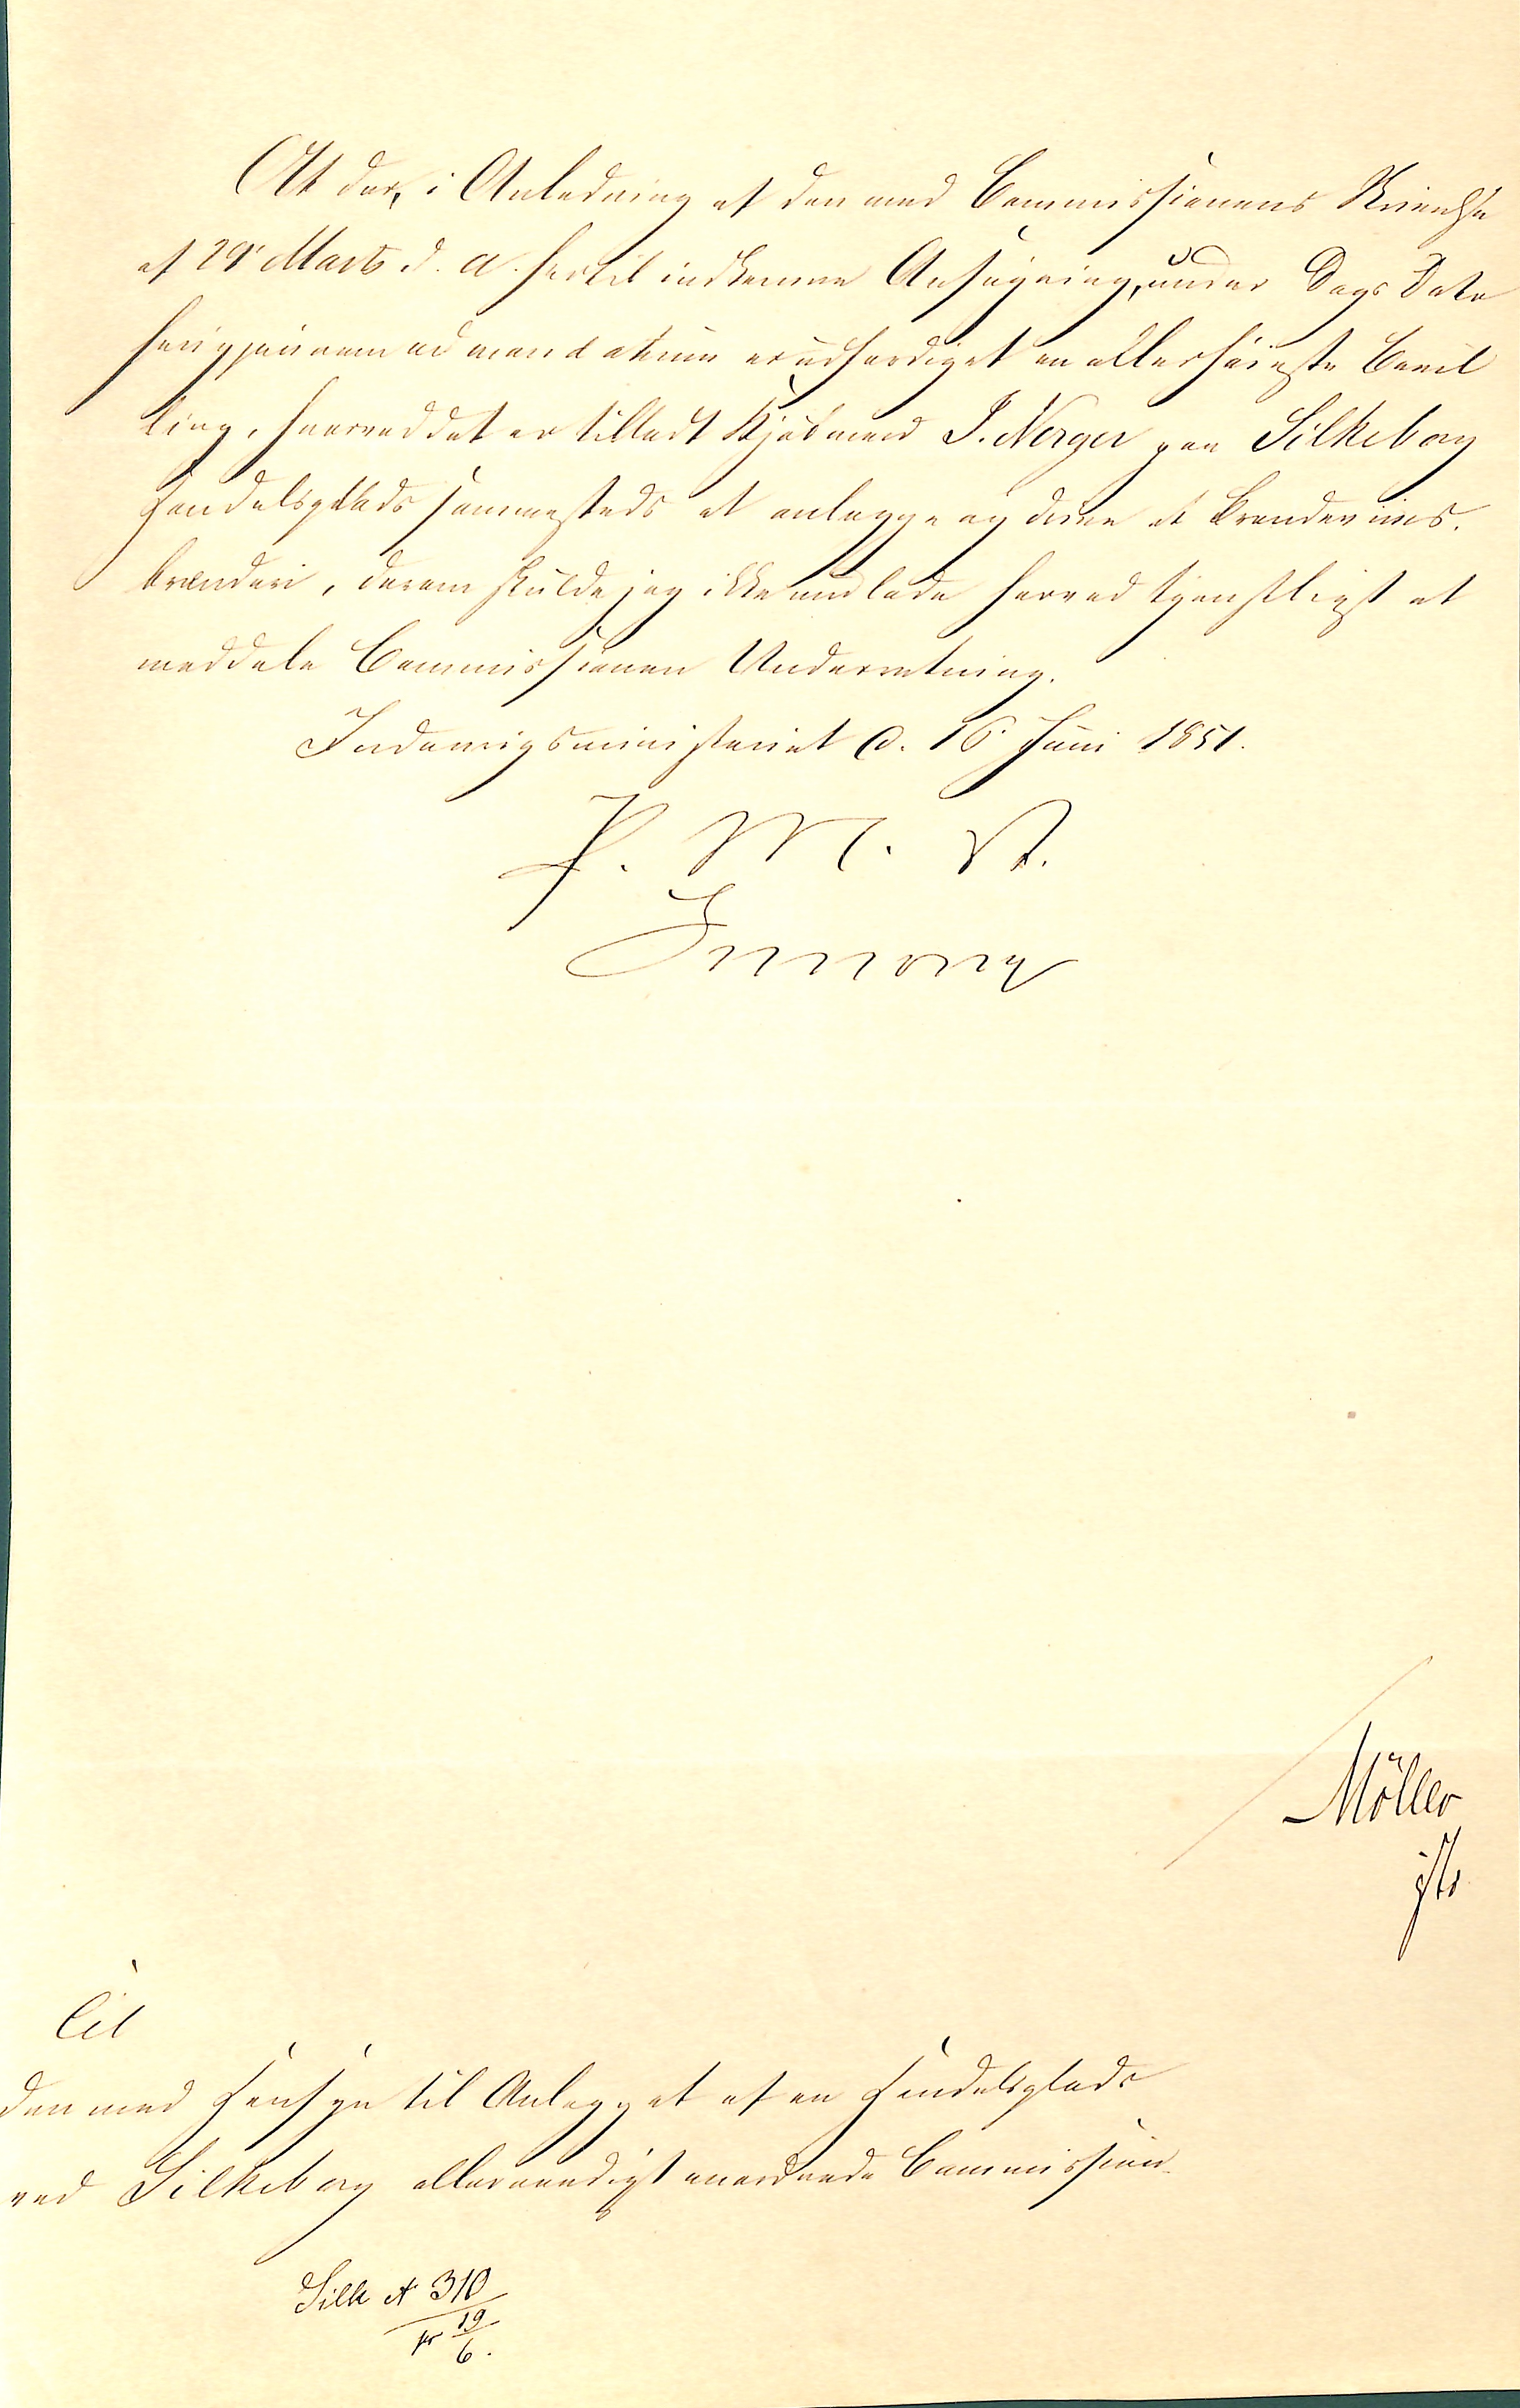 At der, i Anledning af den med Commissionens Skrivelse
af 29 Marts d. A. hertil indkomne Ansøgning, under Dags Dato
herigjennem ad mandatum er udfærdiget en allerhøieste Bevil
ling, hvorved det er tilladt Kjøbmand J. Nerger paa Silkeborg
Handelsplads sammesteds at anlægge og drive et Brændeviins-
brænderi, derom skulde jeg ikke undlade herved tjenstligst at
meddele Commissionen Underretning.
Indenrigsministeriet d. 16 Juni 1851.
F. M. A.
Möller
Til
den med Hensyn til Anlægget af en Handelsplads
ved Silkeborg allernaadigst anordnede Commission.
Silk № 310
pr 19/6.